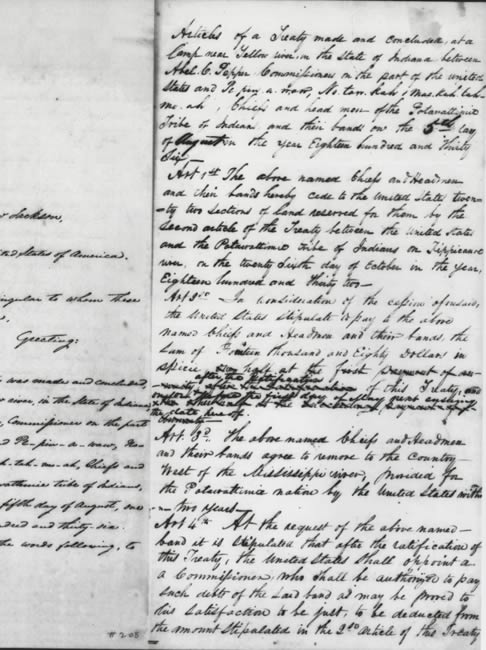 r Jackson,
ed States of America.
ingular to whom these
Greeting:
was made and concluded,
river, in the State of Indiana
, Commissioner on the part
d Pe-pin-a-waw, No-
h-tah-mo-ah, Chiefs and
wattimie tribe of Indians,
fifth day of August, one
ndred and thirty-six.
he words following, to
# 208
Articles of a Treaty made and concluded, at a
Camp near Yellow river, in the State of Indiana between
Abel C. Pepper Commissioner on the part of the united
States and Pe-pin-a-waw, No-taw-Kah & Mas-kah-tah-
mo-ah, Chiefs and head men of the Potawattimie
Tribe of Indians and their bands on the 5th day
of August in the year Eighteen hundred and Thirty
Six
Art 1st The above named Chiefs and Headmen
and their bands hereby cede to the United States twen-
-ty two sections of land reserved for them by the
Second article of the Treaty between the United States
and the Potawattimie tribe of Indians on Tippicanoe
river, on the twenty Sixth day of October in the year,
Eighteen hundred and thirty two—
Art 2nd In consideration of the cession aforesaid,
the United States stipulate to pay to the above
named Chiefs and Headmen and their bands, the
Sum of Fourteen thousand and Eighty Dollars in
specie at the first payment of an-
-nuity, after the ratification of this Treaty, and
the first day of May next ensuing
the date hereof
Art. 3d. The above named Chiefs and Headmen
and their bands agree to remove to the Country
West of the Mississippi river, provided for
the Potawattimie nation by the United States within
two years—
Art 4th At the request of the above named—
band it is stipulated that after the ratification of
this Treaty, the United States Shall appoint a
a Commissioner, who shall be authorized to pay
such debts of the said band as may be proved to
his satisfaction to be just, to be deducted from
the amount stipulated in the 2nd article of this Treaty